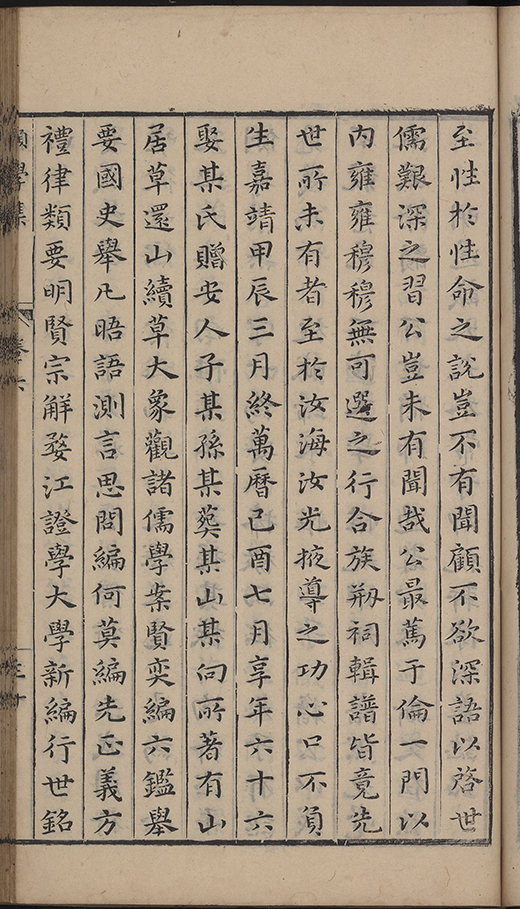 至性於性命之說豈不有聞顧不欲深語以啓世
儒艱深之習公豈未有聞哉公最篤于倫一門以
內雍雍穆穆無可選之行合族剏祠輯譜皆竟先
世所未有者至於汝海汝光掖導之功心口不負
生嘉靖甲辰三月終萬曆己酉七月享年六十六
娶某氏贈安人子某孫某葬某山某向所著有山
居草還山續草大象觀諸儒學案賢奕編六鑑舉
要國史舉凡晤語測言思問編何莫編先正義方
禮律類要明賢宗解婺江證學大學新編行世銘
學集
卷六